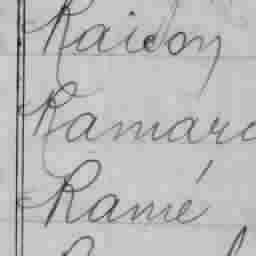 Raison
Ramard
Ramé